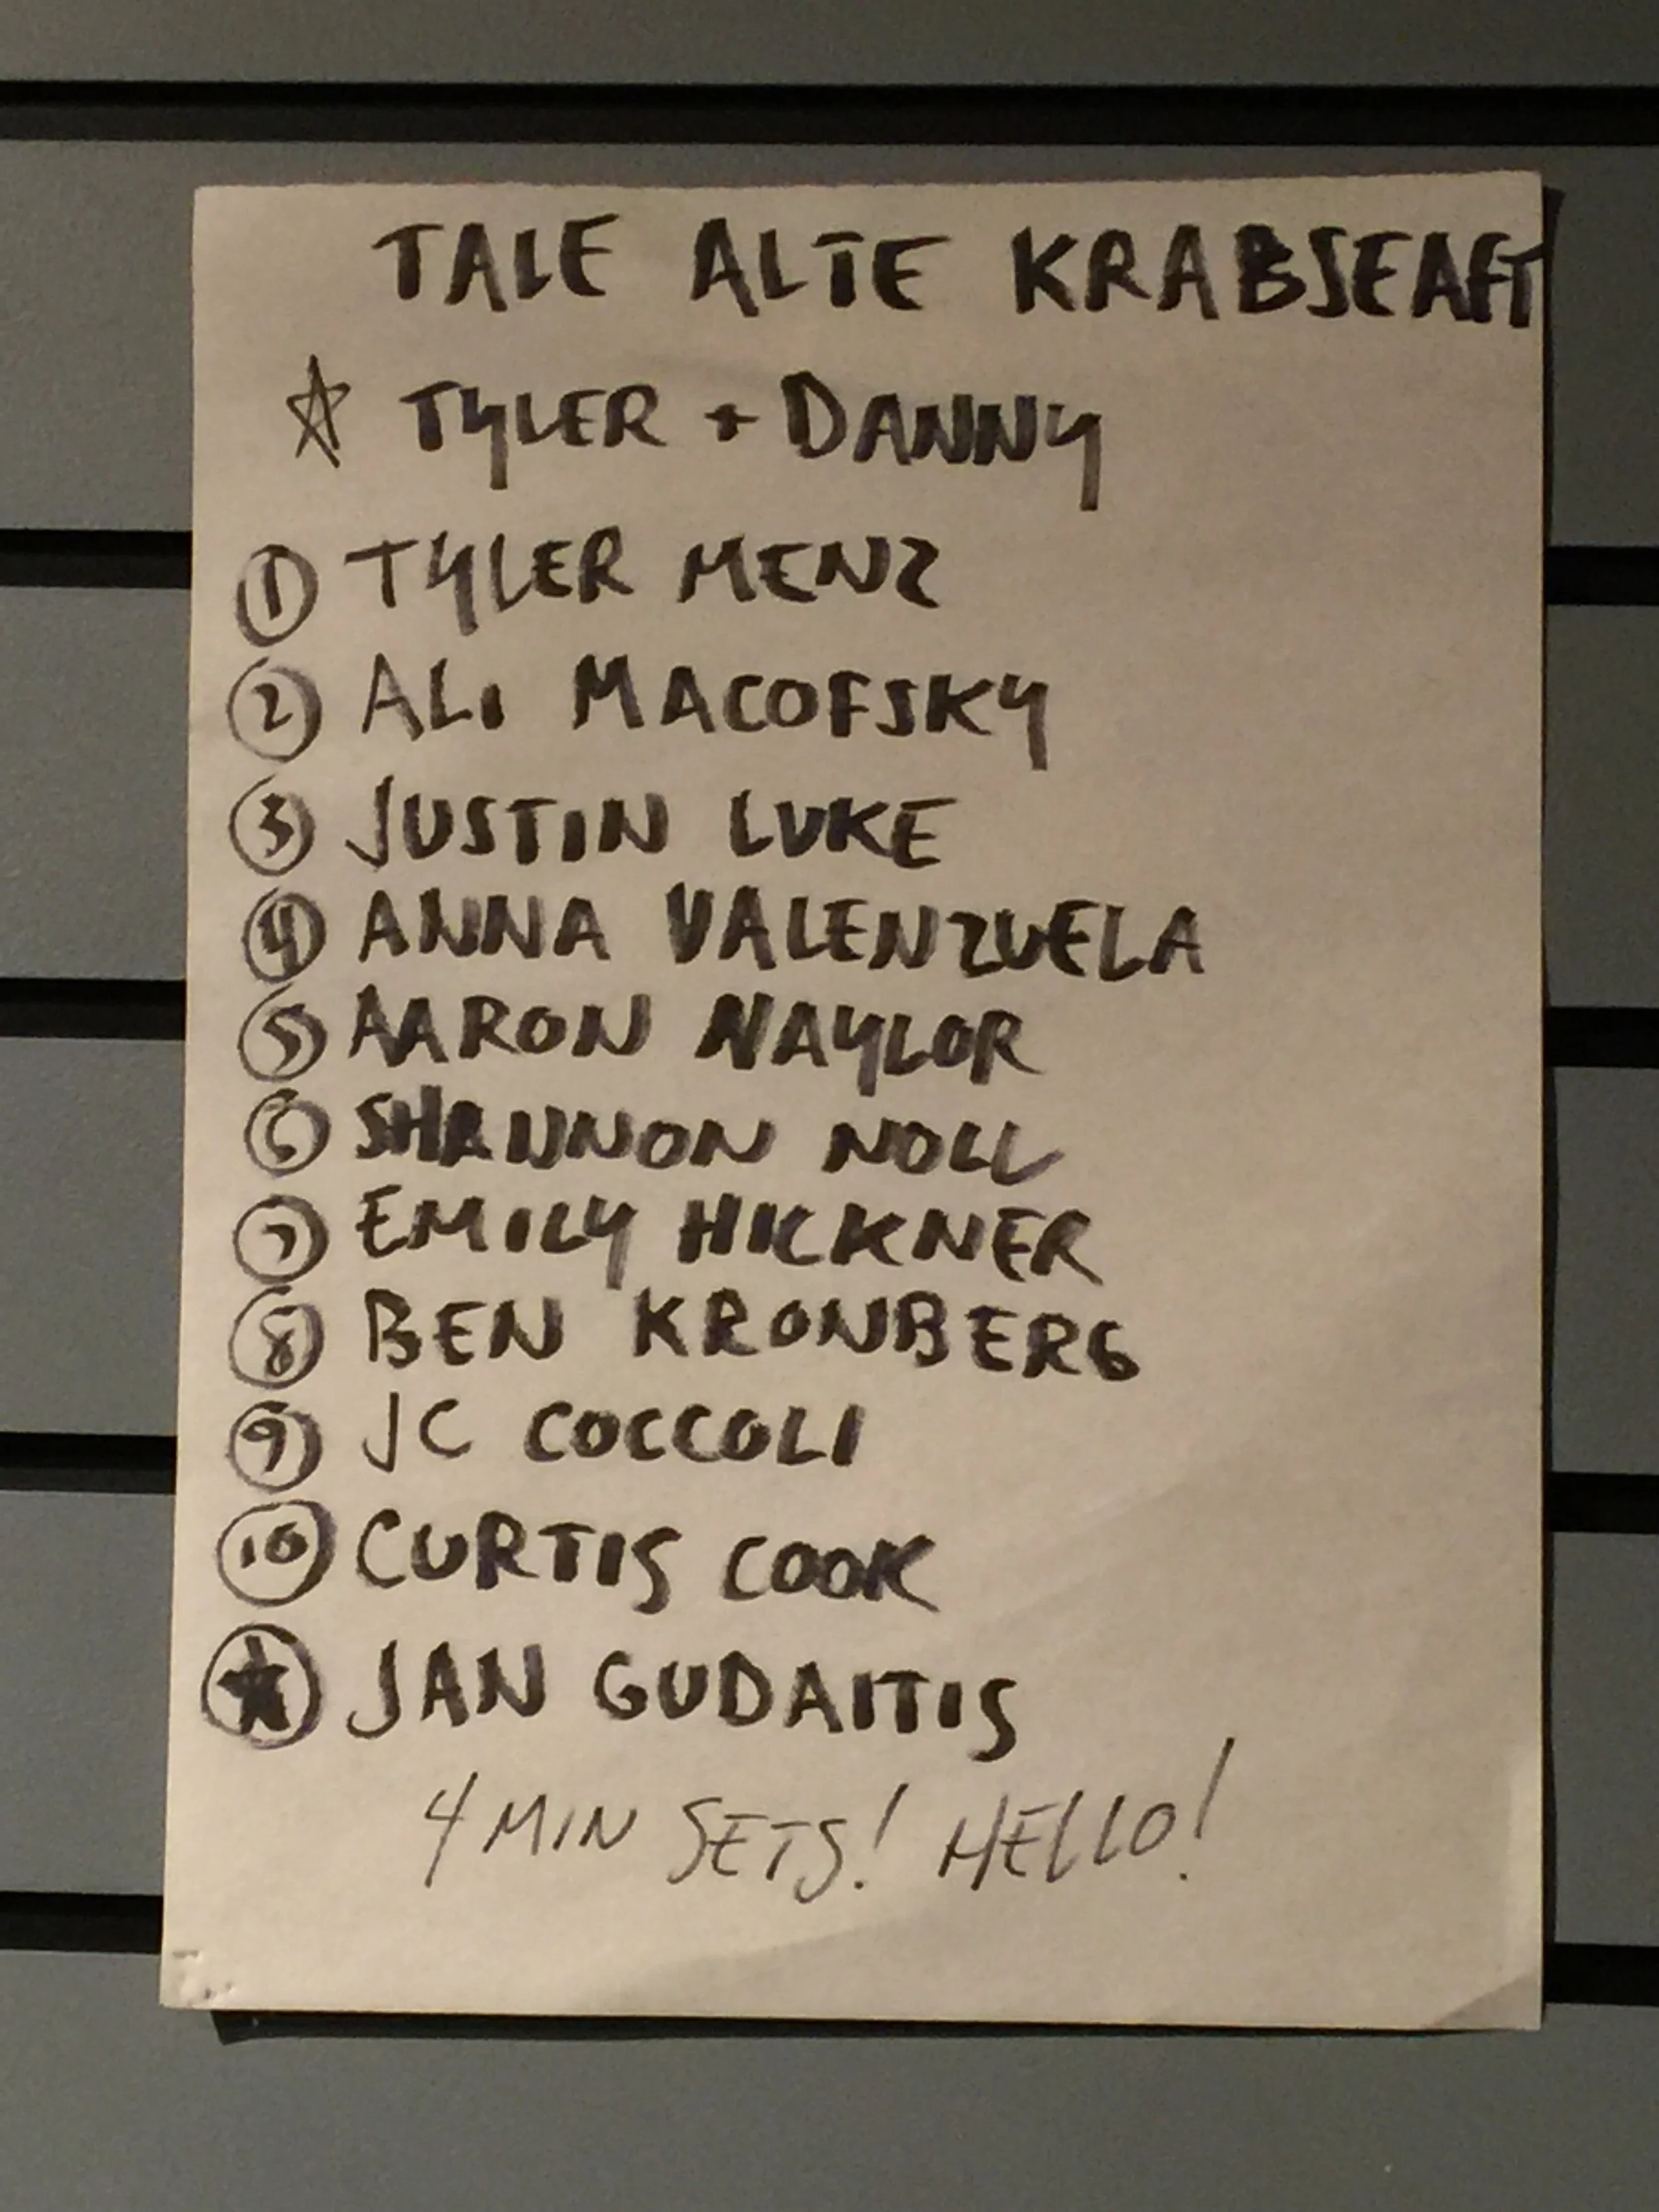 TALE ALTE KRABSEAFT
☆ TYLER + DANNY
① TYLER MENZ
② ALI MACOFSKY
③ JUSTIN LUKE
④ ANNA VALENZUELA
⑤ AARON NAYLOR
⑥ SHANNON NOLL
⑦ EMILY HICKNER
⑧ BEN KRONBERG
⑨ JC COCCOLI
⑩ CURTIS COOK
★ JAN GUDAITIS
4 MIN SETS! HELLO!